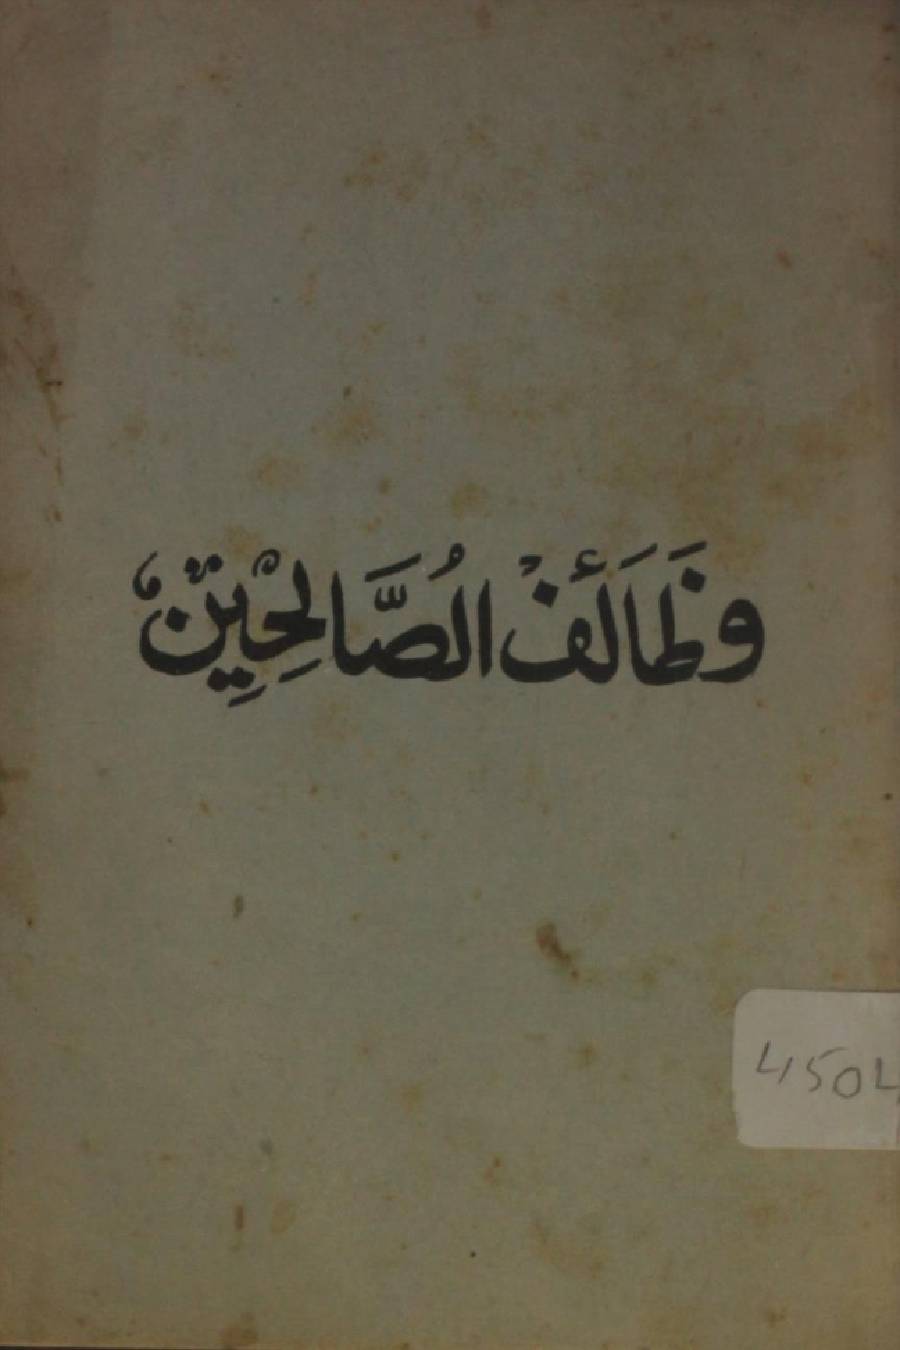 وَظَائَفْ الصَّالِحِيْنْ
4504